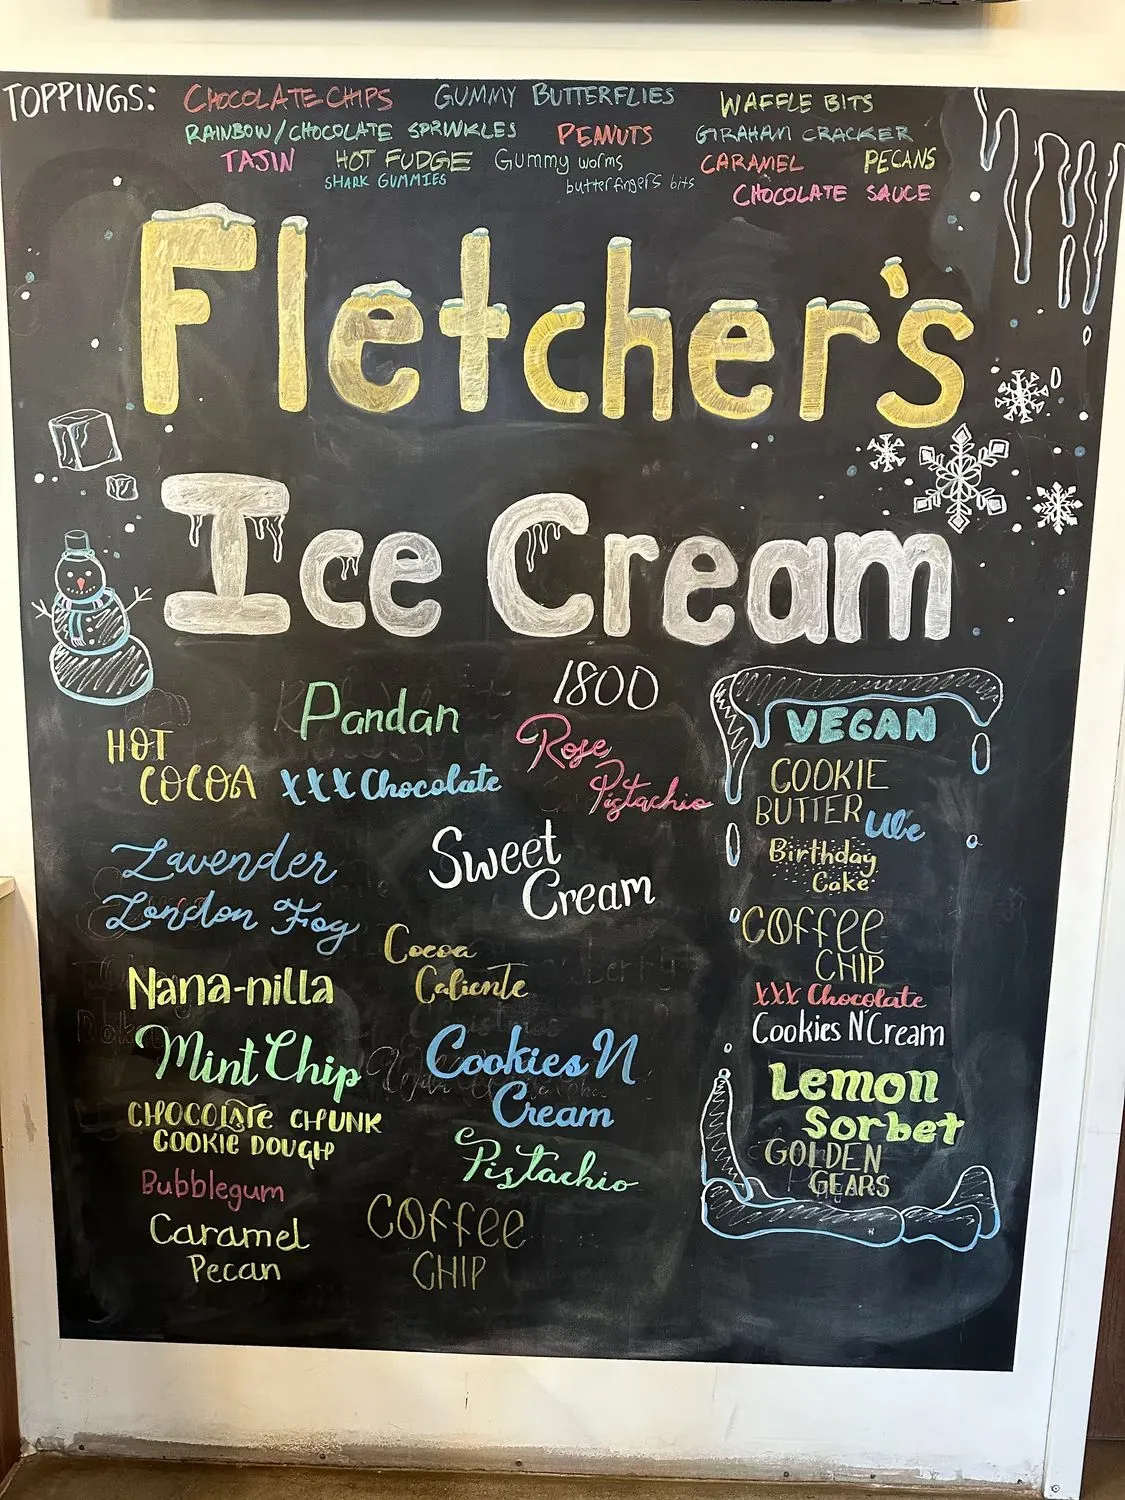 TOPPINGS: CHOCOLATE CHIPS GUMMY BUTTERFLIES WAFFLE BITS
RAINBOW/CHOCOLATE SPRINKLES PEANUTS GRAHAM CRACKER
TAJIN HOT FUDGE Gummy worms CARAMEL PECANS
SHARK GUMMIES butterfingers bits CHOCOLATE SAUCE
Fletcher's
Ice Cream
Pandan
1800
HOT
COCOA
XXX Chocolate
Rose
Pistachio
Lavender
Sweet
Cream
London Fog
Cocoa
Caliente
Nana-nilla
Mint Chip
Cookies N
Cream
CHOCOLATE CHUNK
COOKIE DOUGH
Pistachio
Bubblegum
Caramel
Pecan
COffee
CHIP
VEGAN
COOKIE
BUTTER
Ube
Birthday
Cake
COffee
CHIP
XXX Chocolate
Cookies N'Cream
Lemon
Sorbet
GOLDEN
GEARS